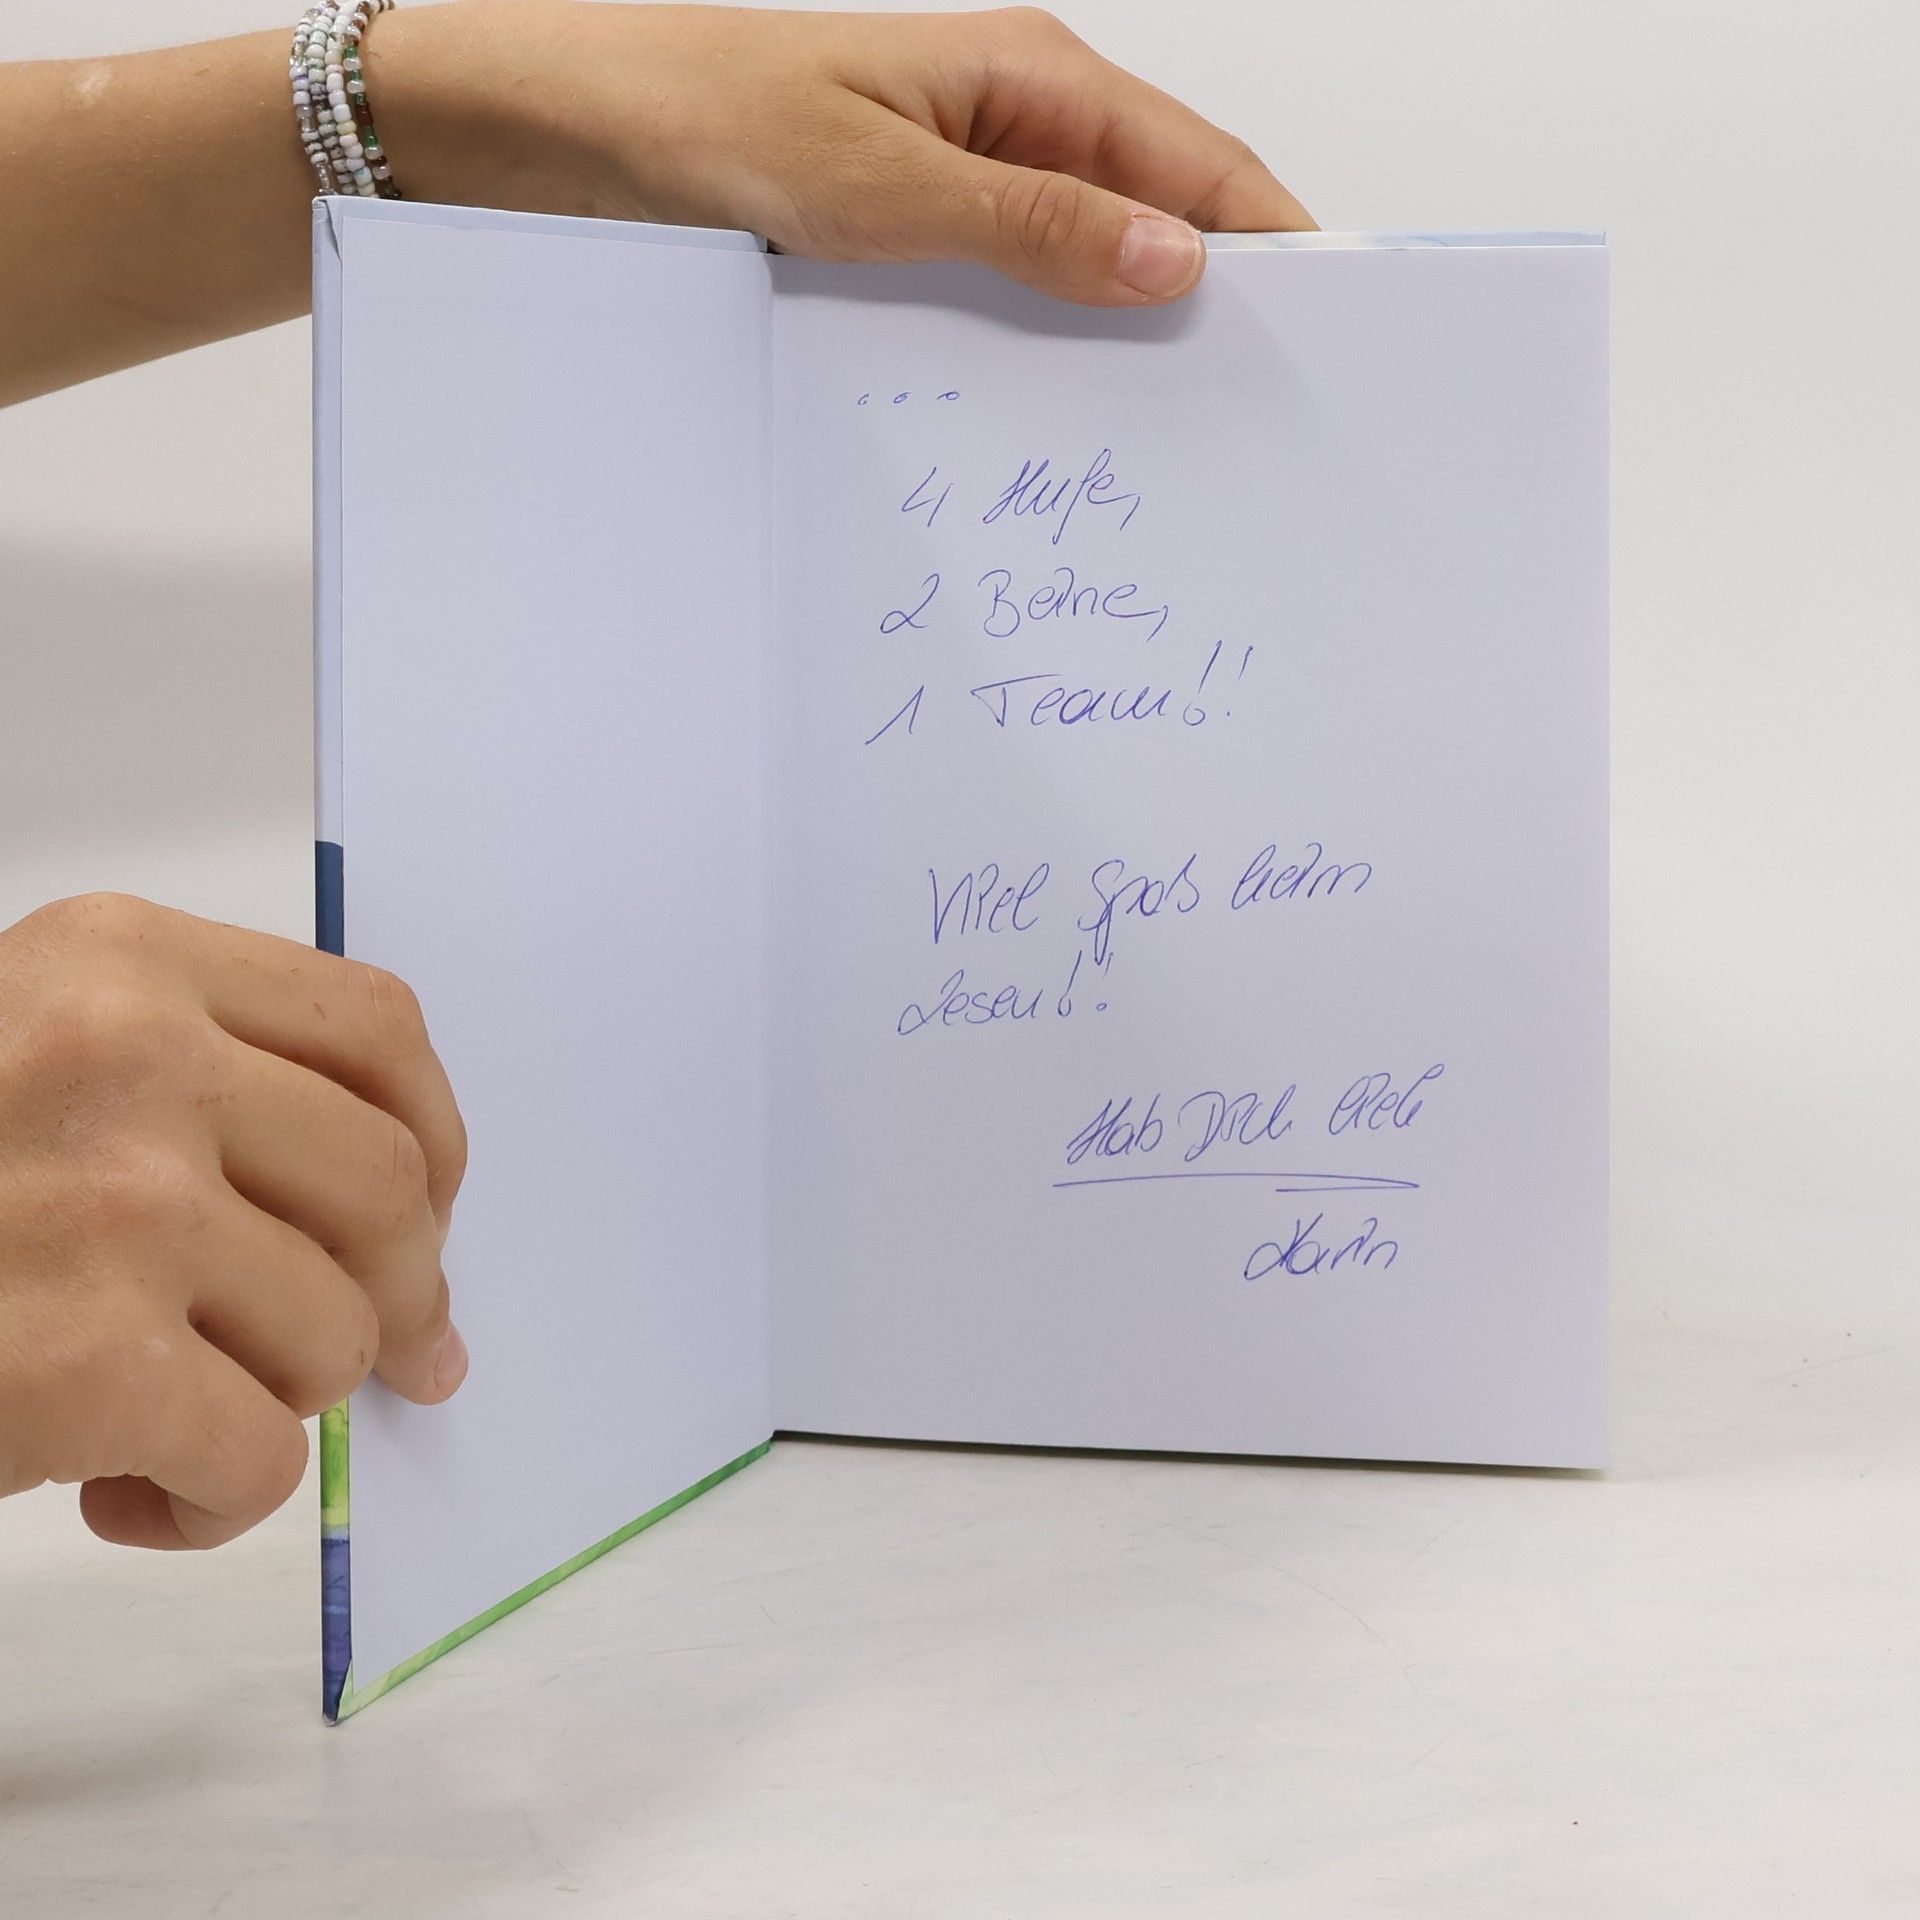 ...
4 Hufe,
2 Beine,
1 Team!!
Viel Spaß beim
Lesen!!
Hab Dich lieb
Karin